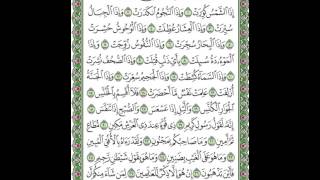 إِذَا ٱلشَّمْسُ كُوِّرَتْ وَإِذَا ٱلنُّجُومُ ٱنكَدَرَتْ وَإِذَا ٱلْجِبَالُ
سُيِّرَتْ وَإِذَا ٱلْعِشَارُ عُطِّلَتْ وَإِذَا ٱلْوُحُوشُ حُشِرَتْ
وَإِذَا ٱلْبِحَارُ سُجِّرَتْ وَإِذَا ٱلنُّفُوسُ زُوِّجَتْ وَإِذَا
ٱلْمَوْءُۥدَةُ سُئِلَتْ بِأَىِّ ذَنۢبٍ قُتِلَتْ وَإِذَا ٱلصُّحُفُ نُشِرَتْ
وَإِذَا ٱلسَّمَآءُ كُشِطَتْ وَإِذَا ٱلْجَحِيمُ سُعِّرَتْ وَإِذَا ٱلْجَنَّةُ
أُزْلِفَتْ عَلِمَتْ نَفْسٌ مَّآ أَحْضَرَتْ فَلَآ أُقْسِمُ بِٱلْخُنَّسِ
ٱلْجَوَارِ ٱلْكُنَّسِ وَٱلَّيْلِ إِذَا عَسْعَسَ وَٱلصُّبْحِ إِذَا تَنَفَّسَ
إِنَّهُۥ لَقَوْلُ رَسُولٍ كَرِيمٍ ذِى قُوَّةٍ عِندَ ذِى ٱلْعَرْشِ مَكِينٍ مُّطَاعٍ
ثَمَّ أَمِينٍ وَمَا صَاحِبُكُم بِمَجْنُونٍ وَلَقَدْ رَءَاهُ بِٱلْأُفُقِ ٱلْمُبِينِ
وَمَا هُوَ عَلَى ٱلْغَيْبِ بِضَنِينٍ وَمَا هُوَ بِقَوْلِ شَيْطَٰنٍ رَّجِيمٍ
فَأَيْنَ تَذْهَبُونَ إِنْ هُوَ إِلَّا ذِكْرٌ لِّلْعَٰلَمِينَ لِمَن شَآءَ مِنكُمْ أَن